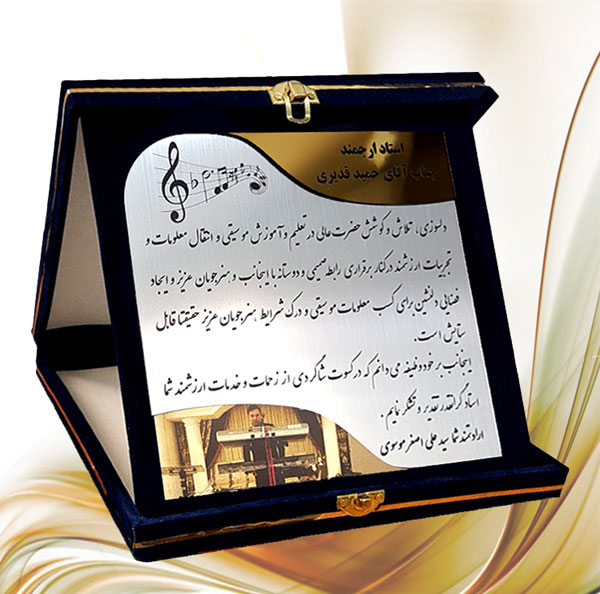 استاد ارجمند
جناب آقای حمید قدیری
دلسوزی، تلاش و کوشش حضرت عالی در تعلیم و آموزش موسیقی و انتقال معلومات و
تجربیات ارزشمند در کنار برقراری رابطه صمیمی و دوستانه با اینجانب و هنرجویان عزیز و ایجاد
فضایی دلنشین برای کسب معلومات موسیقی و درک شرایط هنرجویان عزیز حقیقتا قابل
ستایش است.
اینجانب بر خود وظیفه می دانم که در کسوت شاگردی از زحمات و خدمات ارزشمند شما
استاد گرانقدر تقدیر و تشکر نمایم.
ارادتمند شما سید علی اصغر موسوی